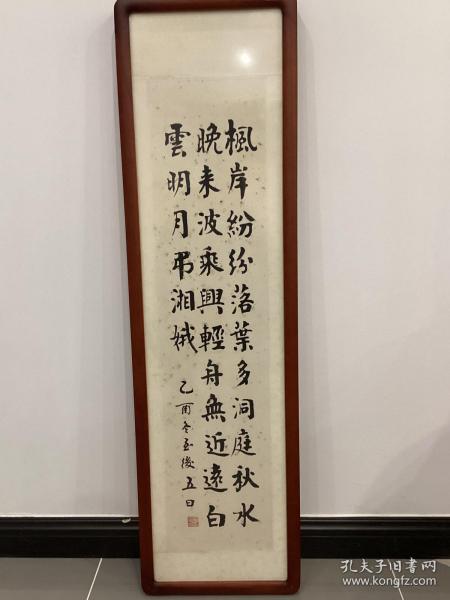 楓岸紛紛落葉多洞庭秋水
晚来波乘興輕舟無近遠白
雲明月弔湘娥
乙酉冬至後五日
孔夫子旧书网
www.kongfz.com